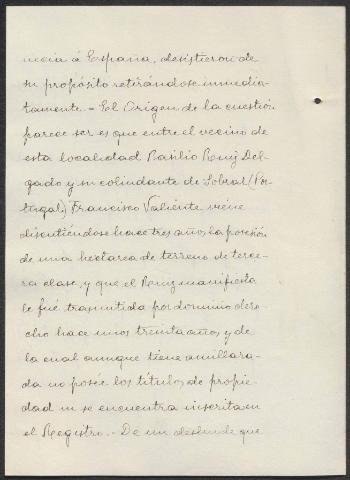 necia á España, desistieron de
su propósito retirándose inmedia-
tamente.= El Origen de la cuestión
parece ser es que entre el vecino de
esta localidad Basilio Ruiz Del-
gado y su colindante de Sobral (Por-
tugal) Francisco Valiente viene
discutiéndose hace tres años, la posesión
de una hectarea de terreno de terce-
ra clase, y que el Ruiz manifiesta
le fué trasmitida por dominio dere-
cho hace unos treinta años, y de
la cual aunque tiene amillara-
da no posée los títulos de propie-
dad ni se encuentra inscrita en
el Registro.- De un deslinde que